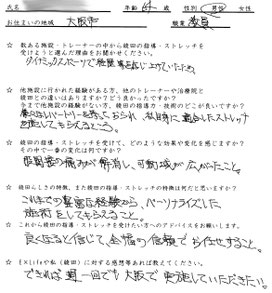 氏名 年齢 性別 男性 女性
お住まいの地域 大阪市 職業 教員
☆ 数ある施設・トレーナーの中から緒田の指導・ストレッチを
受けようと選んだ理由をお聞かせください。
ダイナミックスポーツで
☆ 他施設に行かれた経験がある方、他のトレーナーや治療院と
の違いはありますか?どう良かったですか?
今まで他施設の経験がない方、緒田の指導力・技術のどこが良いですか?
ストレッチ
を施してもらえるところ。
☆ 緒田の指導・ストレッチを受けて、どのような効果や変化を感じますか?
その中で一番の変化は何ですか?
の痛みが解消し、可動域が広がったこと。
☆ 緒田らしさの特徴、また緒田の指導・ストレッチの特徴は何だと思いますか?
これまでの豊富な経験から、パーソナライズした
施術をしてもらえること。
☆ これから緒田の指導・ストレッチを受けたい方へのアドバイスをお願いします。
良くなると信じて、全幅の信頼でお任せすること。
☆ EXLifeや私(緒田)に対する感想等あれば教えてください。
できれば週一回でも大阪で実施していただきたい!